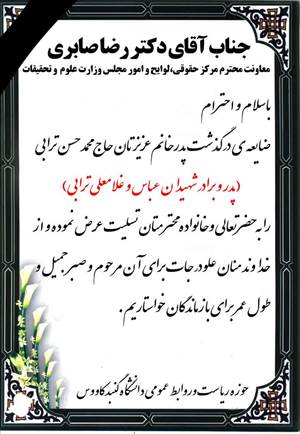 جناب آقای دکتر رضا صابری
معاونت محترم مرکز حقوقی،لوایح و امور مجلس وزارت علوم و تحقیقات
باسلام و احترام
ضایعه ی درگذشت پدر خانم عزیزتان حاج محمد حسن ترابی
(پدر و برادر شهیدان عباس و غلامعلی ترابی)
را به حضرتعالی و خانواده محترمتان تسلیت عرض نموده و از
خداوند منان علو درجات برای آن مرحوم و صبر جمیل و
طول عمر برای بازماندگان خواستاریم.
حوزه ریاست و روابط عمومی دانشگاه گنبد کاووس